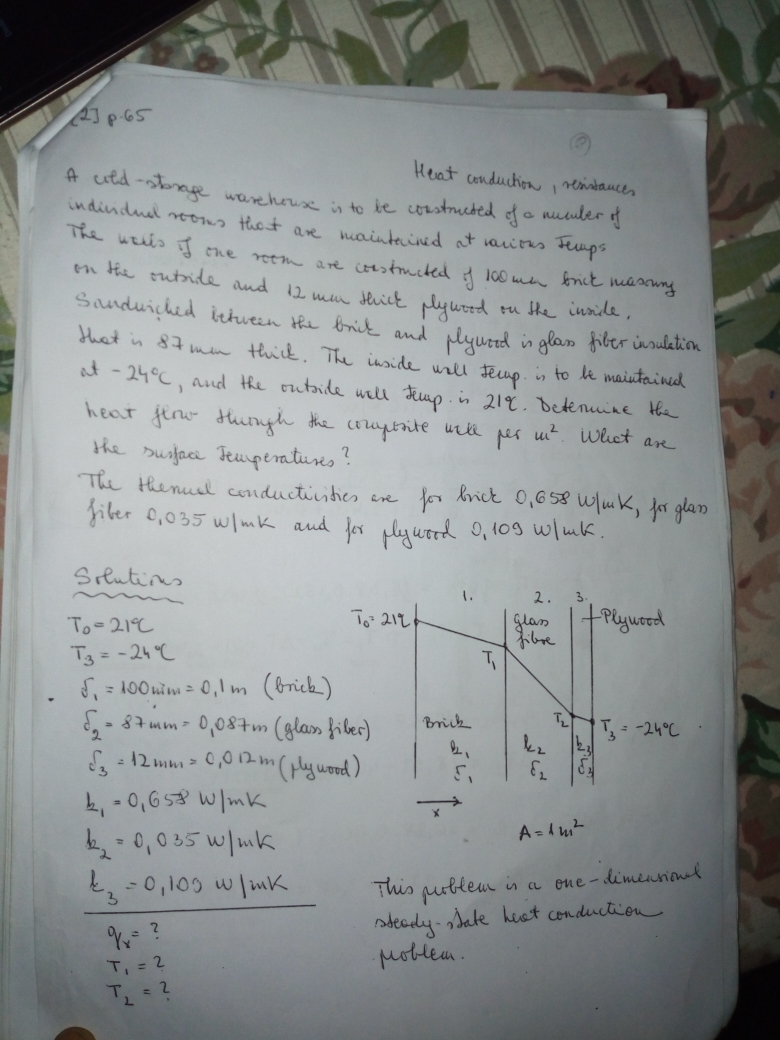 [2] p.65
Heat conduction, resistances
A cold-storage warehouse is to be constructed of a number of
individual rooms that are maintained at various temps
The walls of one room are constructed of 100 mm brick masonry
on the outside and 12 mm thick plywood on the inside.
Sandwiched between the brick and plywood is glass fiber insulation
that is 87 mm thick. The inside wall temp. is to be maintained
at -24°C, and the outside wall temp. is 21°C. Determine the
heat flow through the composite wall per m². What are
the surface temperatures?
The thermal conductivities are for brick 0,658 W/mK, for glass
fiber 0,035 W/mK and for plywood 0,109 W/mK.
Solutions
T₀ = 21°C
T₃ = -24°C
δ₁ = 100mm = 0,1m (brick)
δ₂ = 87mm = 0,087m (glass fiber)
δ₃ = 12mm = 0,012m (plywood)
k₁ = 0,658 W/mK
k₂ = 0,035 W/mK
k₃ = 0,109 W/mK
qₓ = ?
T₁ = ?
T₂ = ?
1. 2. 3.
T₀ = 21°C
glass
fibre
Plywood
T₁
T₂
T₃ = -24°C
Brick
k₁ k₂ k₃
δ₁ δ₂ δ₃
x
A = 1m²
This problem is a one-dimensional
steady-state heat conduction
problem.